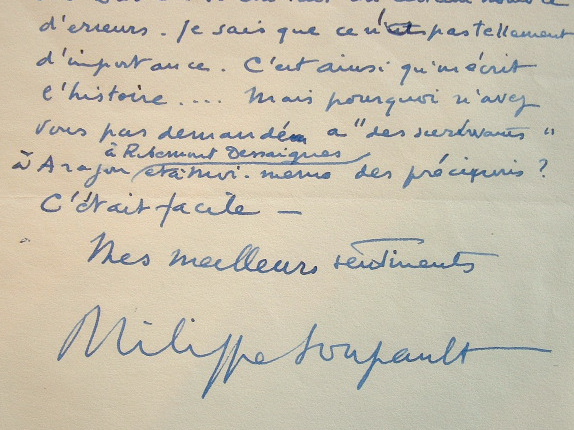 d'erreurs. Je sais que ce n'est pas tellement
d'importance. C'est ainsi qu'on écrit
l'histoire.... Mais pourquoi n'avez
vous pas demandé à "des survivants"
à Ribemont Dessaignes
à Aragon et à moi-même des précisions ?
C'était facile —
Mes meilleurs sentiments
Philippe Soupault